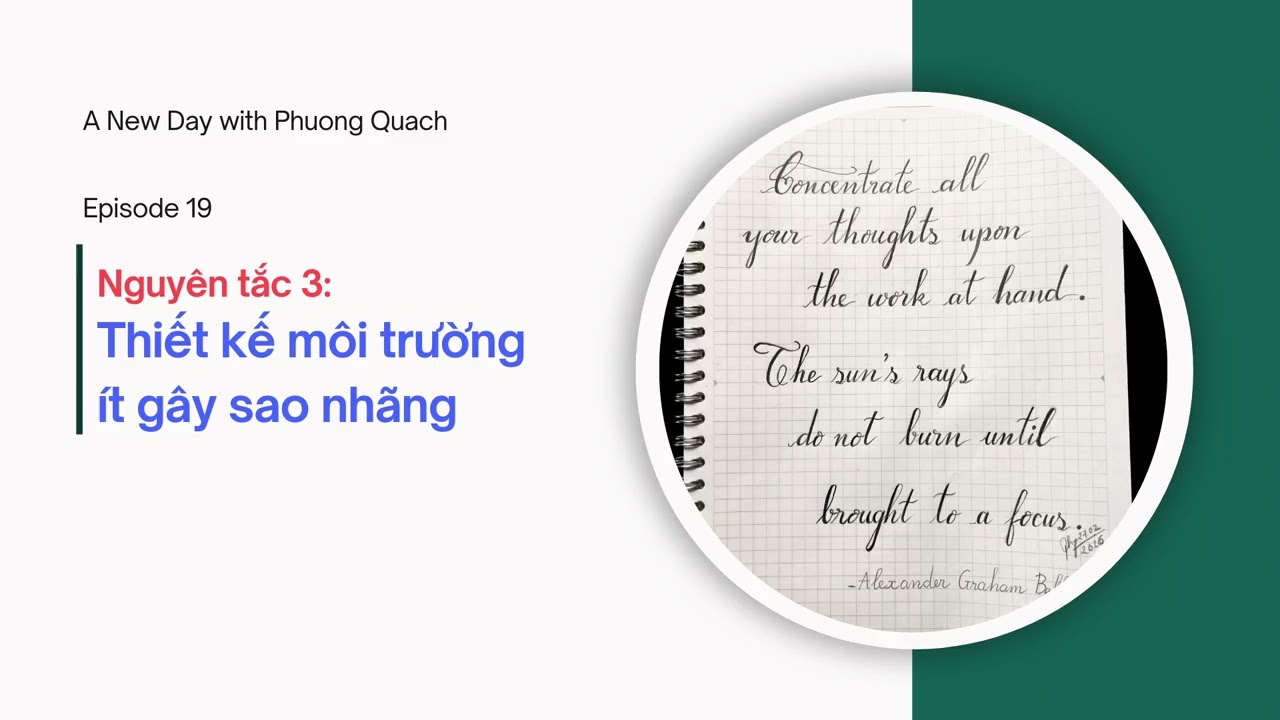 A New Day with Phuong Quach
Episode 19
Nguyên tắc 3:
Thiết kế môi trường
ít gây sao nhãng
Concentrate all
your thoughts upon
the work at hand.
The sun's rays
do not burn until
brought to a focus.
27.02
2026
-Alexander Graham